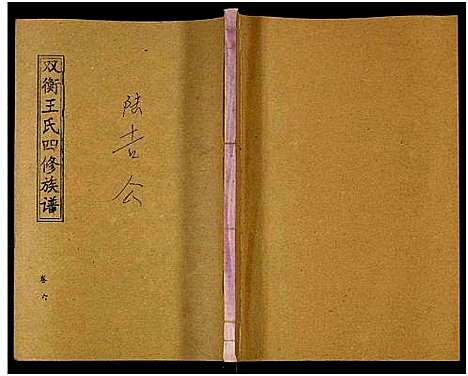 双衡王氏四修族谱
卷六
陸吉公